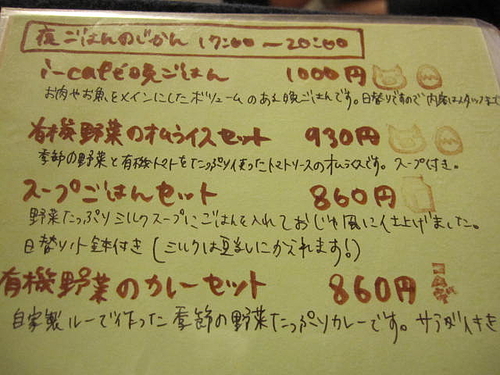 夜ごはんのじかん 17:00〜20:00
i-caféの晩ごはん 1000円
お肉やお魚をメインにしたボリュームのある晩ごはんです。日替りですので内容はスタッフまで
有機野菜のオムライスセット 930円
季節の野菜と有機トマトをたっぷり使ったトマトソースのオムライスです。スープ付き。
スープごはんセット 860円
野菜たっぷりミルクスープにごはんを入れておじや風に仕上げました。
日替り 付き (ミルクは豆乳にかえれます!)
有機野菜のカレーセット 860円
自家製ルーで作った季節の野菜たっぷりカレーです。サラダ付き